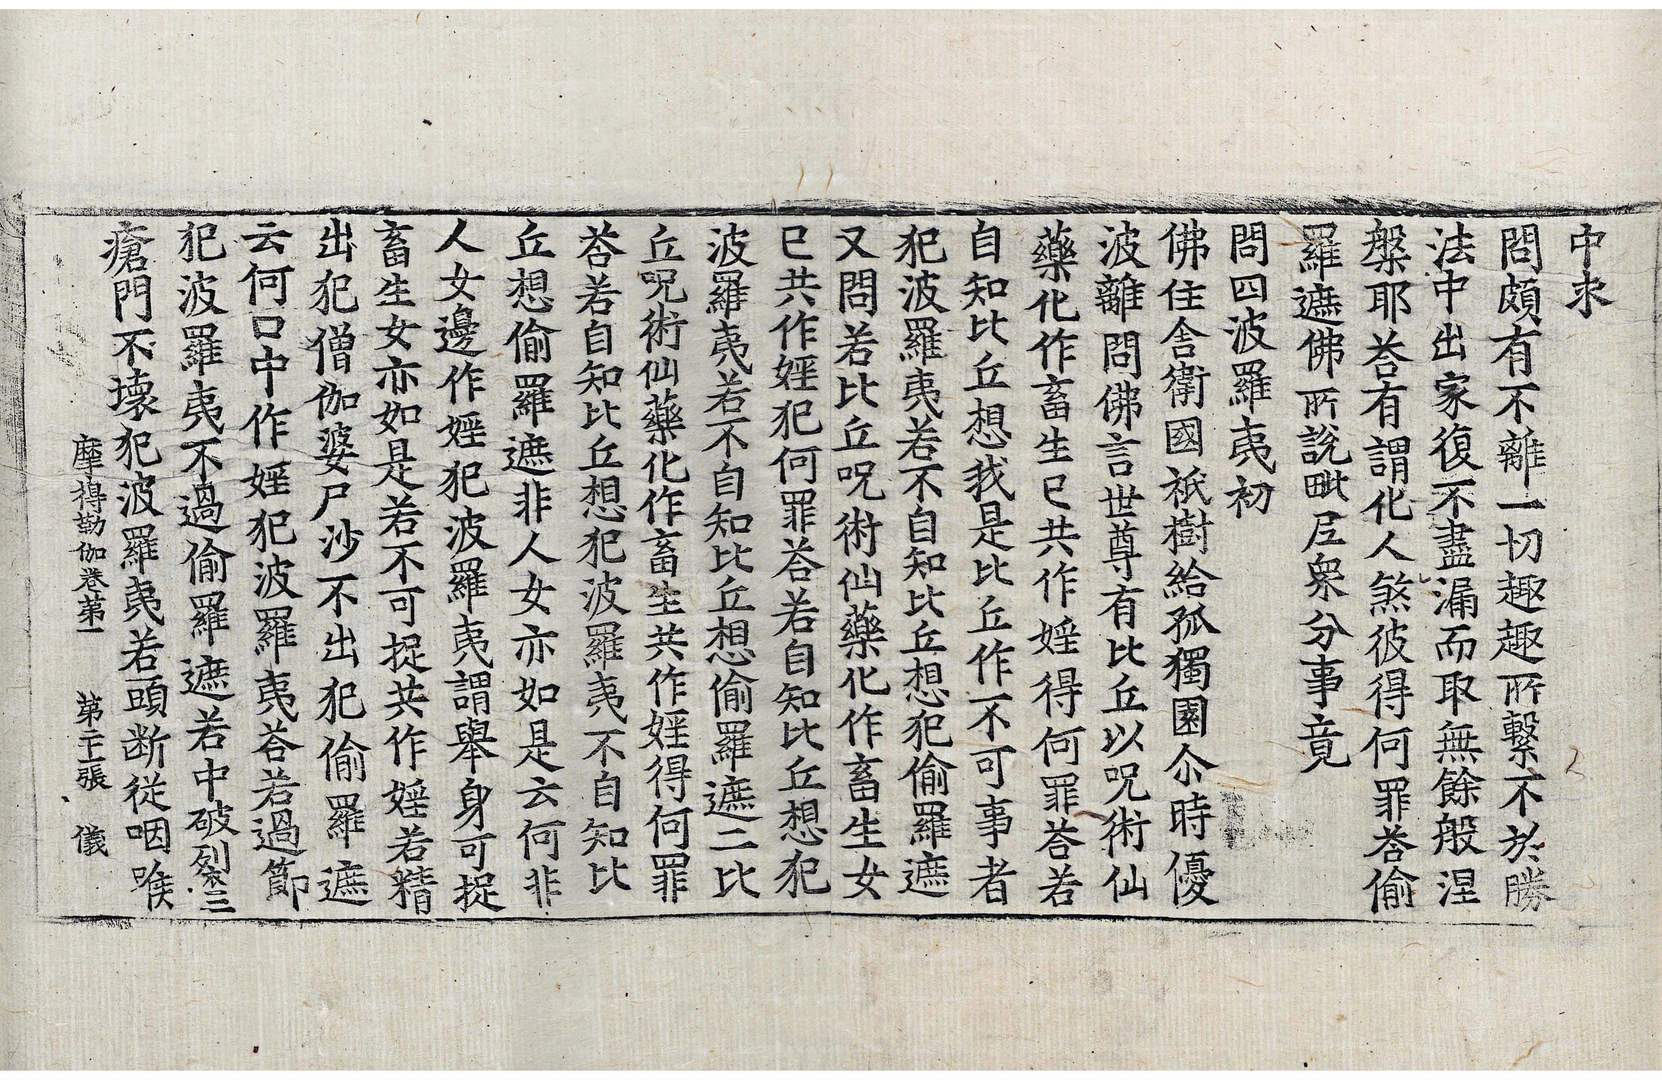 中求
問頗有不離一切趣趣所繫不於勝
法中出家復不盡漏而取無餘般涅
槃耶荅有謂化人煞彼得何罪荅偷
羅遮佛所說毗尼衆分事竟
問四波羅夷初
佛住舍衛國祇樹給孤獨園尒時優
波離問佛言世尊有比丘以呪術仙
藥化作畜生已共作婬得何罪荅若
自知比丘想我是比丘作不可事者
犯波羅夷若不自知比丘想犯偷羅遮
又問若比丘呪術仙藥化作畜生女
已共作婬犯何罪荅若自知比丘想犯
波羅夷若不自知比丘想偷羅遮二比
丘呪術仙藥化作畜生共作婬得何罪
荅若自知比丘想犯波羅夷不自知比
丘想偷羅遮非人女亦如是云何非
人女邊作婬犯波羅夷謂舉身可捉
畜生女亦如是若不可捉共作婬若精
出犯僧伽婆尸沙不出犯偷羅遮
云何口中作婬犯波羅夷荅若過節
犯波羅夷不過偷羅遮若中破列本三
瘡門不壞犯波羅夷若頭断從咽喉
摩得勒伽卷第一 第二十張 儀